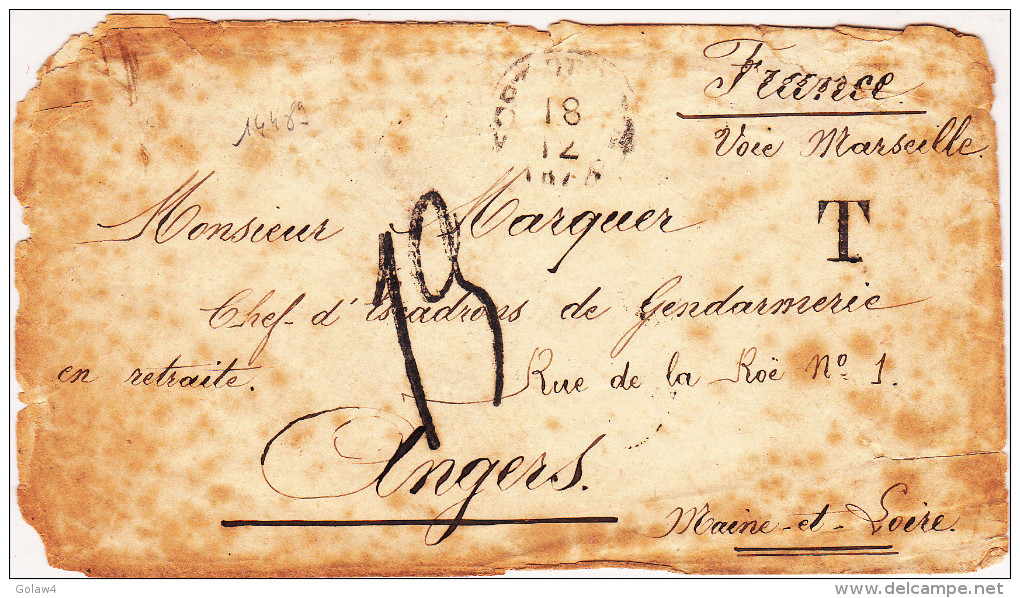 France
Voie Marseille.
14489
18
12
T
Monsieur Marquer
Chef d'Escadrons de Gendarmerie
en retraite. Rue de la Roë Nº 1.
Angers.
Maine-et-Loire.
Golaw4
delcampe.net